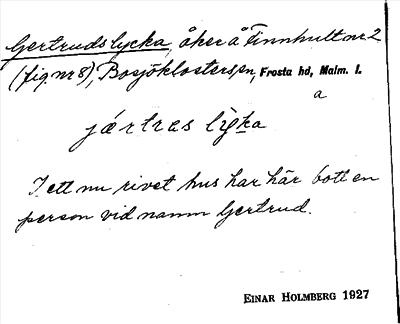 Gertrudslycka, åker å Finnhult nr 2
(fig. nr 8), Bosjöklosters sn, Frosta hd, Malm. l.
a
jǽrtras lyka
I ett nu rivet hus har här bott en
person vid namn Gertrud.
EINAR HOLMBERG 1927